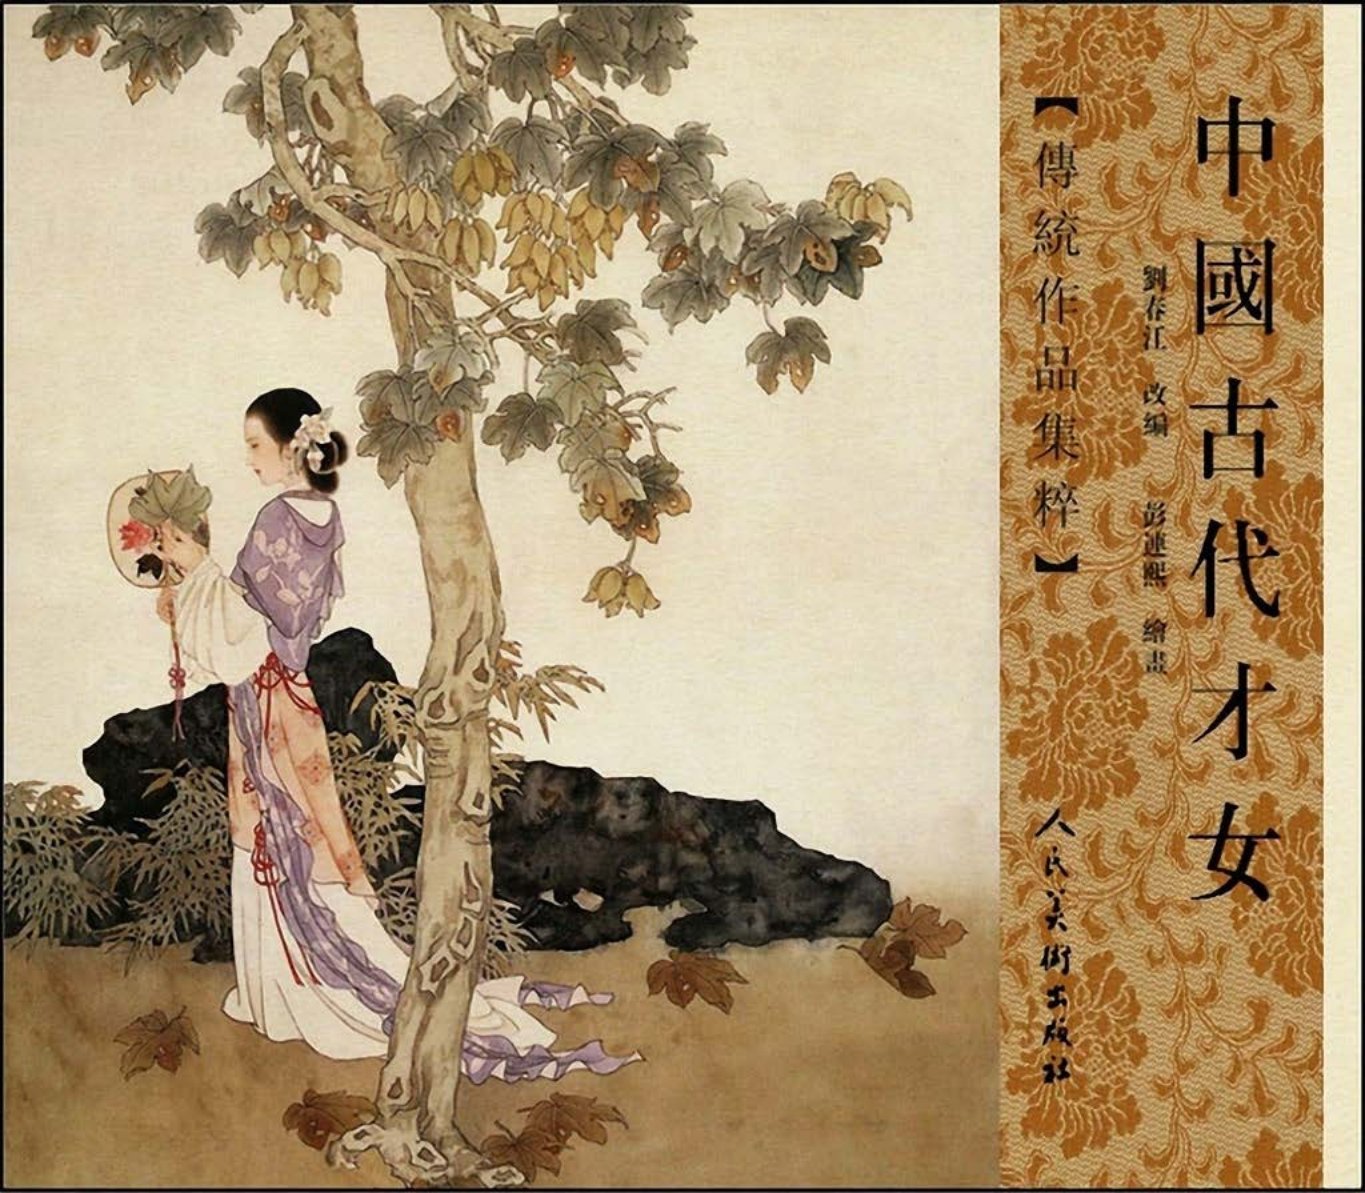 中國古代才女
劉春江 改編 彭連熙 繪畫
【傳統作品集粹】
人民美術出版社